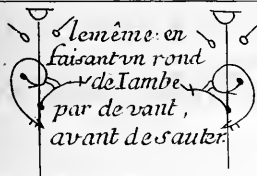 lemême: en
faisant vn rond
de Iambe
par devant,
avant de sauter.